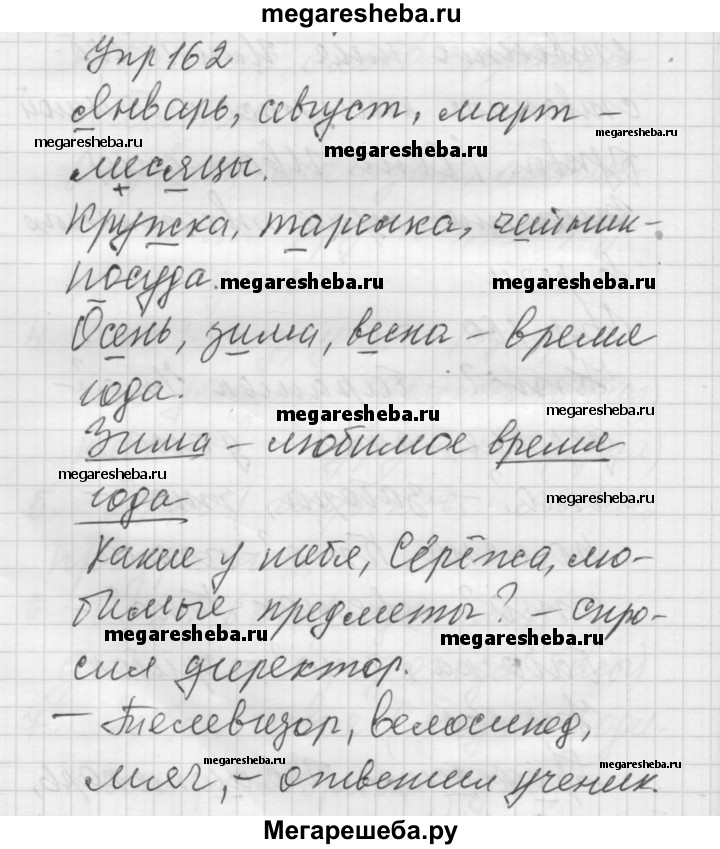 megaresheba.ru
Упр 162
Январь, август, март –
megaresheba.ru
megaresheba.ru
megaresheba.ru
месяцы.
Кружка, тарелка, чайник –
посуда.
megaresheba.ru
megaresheba.ru
Осень, зима, весна – время
года.
megaresheba.ru
megaresheba.ru
Зима – любимое время
megaresheba.ru
megaresheba.ru
года
Какие у тебя, Серёжа, лю-
бимые предметы? – спро-
megaresheba.ru
megaresheba.ru
сил директор.
– Телевизор, велосипед,
megaresheba.ru
megaresheba.ru
мяч, – ответил ученик.
Мегарешеба.ру